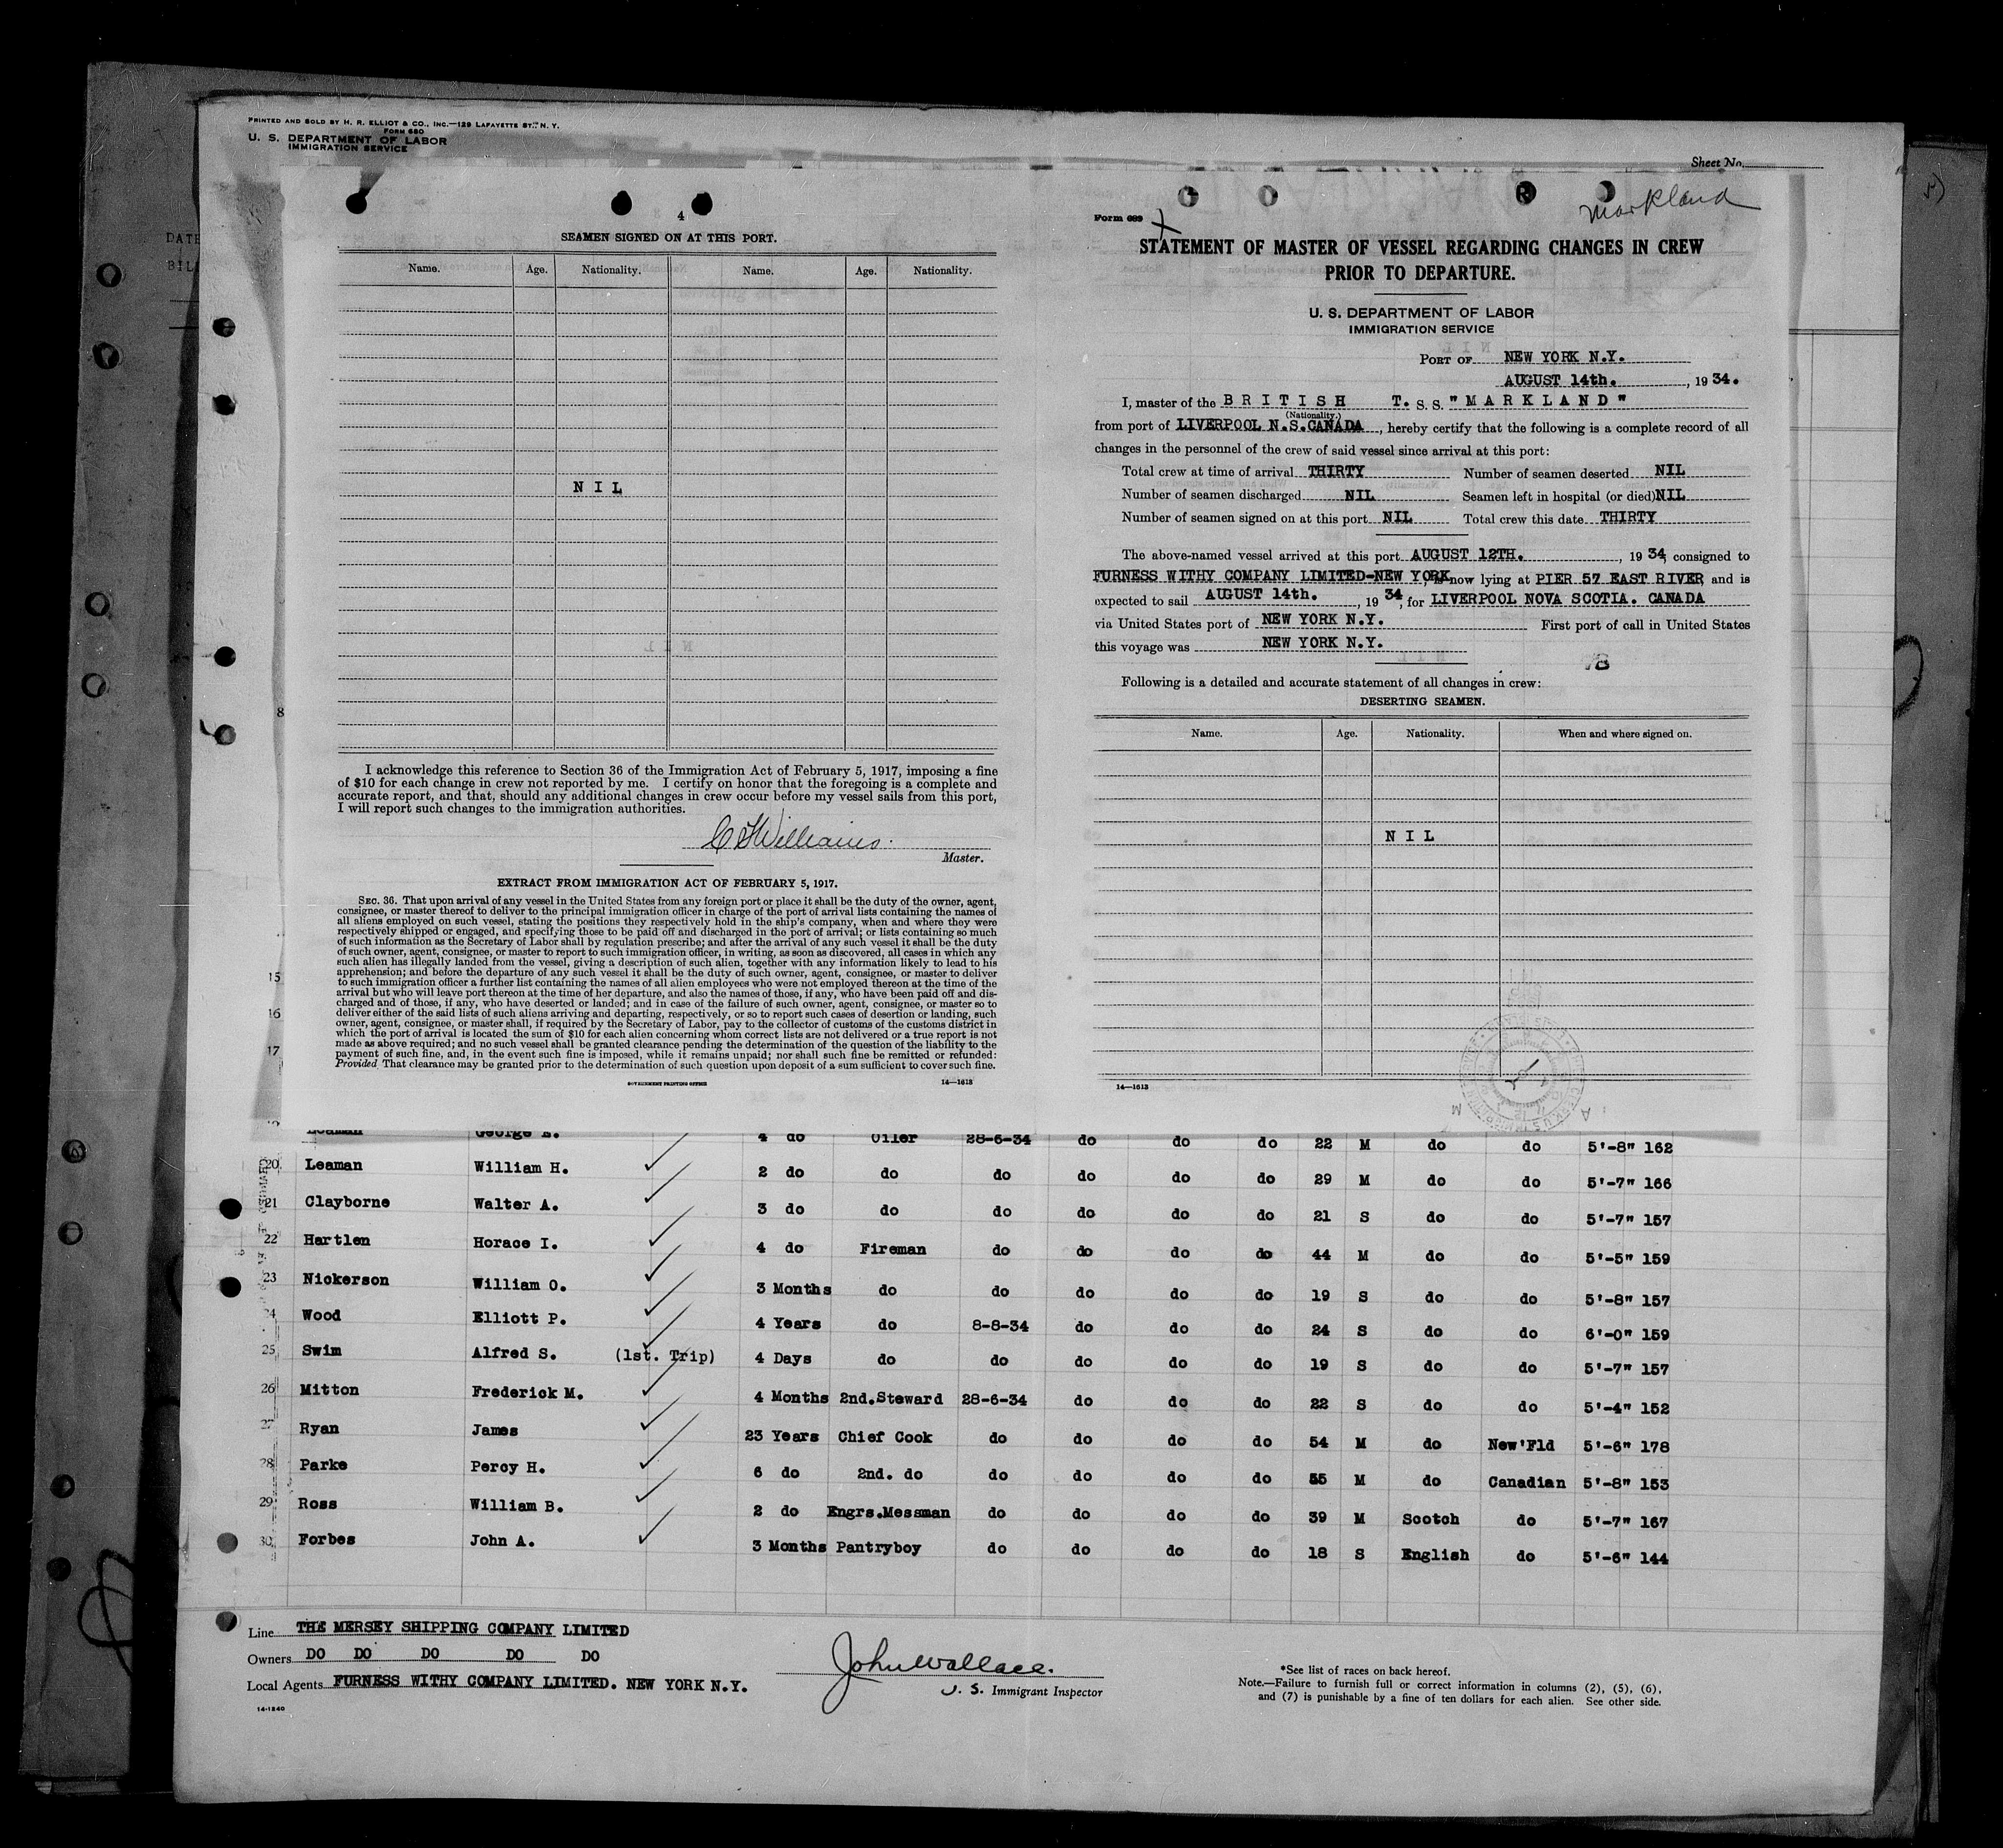 PRINTED AND SOLD BY H. R. ELLIOT & CO., INC.—129 LAFAYETTE ST., N. Y.
FORM 680
U. S. DEPARTMENT OF LABOR
IMMIGRATION SERVICE
Sheet No.
DATE
BIL
4
SEAMEN SIGNED ON AT THIS PORT.
Name. Age. Nationality. Name. Age. Nationality.
N I L
8
I acknowledge this reference to Section 36 of the Immigration Act of February 5, 1917, imposing a fine
of $10 for each change in crew not reported by me. I certify on honor that the foregoing is a complete and
accurate report, and that, should any additional changes in crew occur before my vessel sails from this port,
I will report such changes to the immigration authorities.
Williams.
Master.
EXTRACT FROM IMMIGRATION ACT OF FEBRUARY 5, 1917.
SEC. 36. That upon arrival of any vessel in the United States from any foreign port or place it shall be the duty of the owner, agent,
consignee, or master thereof to deliver to the principal immigration officer in charge of the port of arrival lists containing the names of
all aliens employed on such vessel, stating the positions they respectively hold in the ship's company, when and where they were
respectively shipped or engaged, and specifying those to be paid off and discharged in the port of arrival; or lists containing so much
of such information as the Secretary of Labor shall by regulation prescribe; and after the arrival of any such vessel it shall be the duty
of such owner, agent, consignee, or master to report to such immigration officer, in writing, as soon as discovered, all cases in which any
such alien has illegally landed from the vessel, giving a description of such alien, together with any information likely to lead to his
apprehension; and before the departure of any such vessel it shall be the duty of such owner, agent, consignee, or master to deliver
to such immigration officer a further list containing the names of all alien employees who were not employed thereon at the time of the
arrival but who will leave port thereon at the time of her departure, and also the names of those, if any, who have been paid off and dis-
charged and of those, if any, who have deserted or landed; and in case of the failure of such owner, agent, consignee, or master so to
deliver either of the said lists of such aliens arriving and departing, respectively, or so to report such cases of desertion or landing, such
owner, agent, consignee, or master shall, if required by the Secretary of Labor, pay to the collector of customs of the customs district in
which the port of arrival is located the sum of $10 for each alien concerning whom correct lists are not delivered or a true report is not
made as above required; and no such vessel shall be granted clearance pending the determination of the question of the liability to the
payment of such fine, and, in the event such fine is imposed, while it remains unpaid; nor shall such fine be remitted or refunded:
Provided, That clearance may be granted prior to the determination of such question upon deposit of a sum sufficient to cover such fine.
GOVERNMENT PRINTING OFFICE 14—1613
15
16
17
Markland
Form 689
STATEMENT OF MASTER OF VESSEL REGARDING CHANGES IN CREW
PRIOR TO DEPARTURE.
U. S. DEPARTMENT OF LABOR
IMMIGRATION SERVICE
PORT OF NEW YORK N.Y.
AUGUST 14th. , 19 34.
I, master of the B R I T I S H T. S. S. "M A R K L A N D"
(Nationality.)
from port of LIVERPOOL N.S.CANADA, hereby certify that the following is a complete record of all
changes in the personnel of the crew of said vessel since arrival at this port:
Total crew at time of arrival THIRTY Number of seamen deserted NIL
Number of seamen discharged NIL Seamen left in hospital (or died) NIL
Number of seamen signed on at this port NIL Total crew this date THIRTY
The above-named vessel arrived at this port AUGUST 12TH. , 19 34, consigned to
FURNESS WITHY COMPANY LIMITED-NEW YORK, is now lying at PIER 57 EAST RIVER and is
expected to sail AUGUST 14th. , 19 34, for LIVERPOOL NOVA SCOTIA. CANADA
via United States port of NEW YORK N.Y. First port of call in United States
this voyage was NEW YORK N.Y.
Following is a detailed and accurate statement of all changes in crew:
DESERTING SEAMEN.
Name. Age. Nationality. When and where signed on.
N I L
14—1613
Leaman George E. 4 do Oiler 28-6-34 do do do 22 M do do 5'-8" 162
20 Leaman William H. 2 do do do do do do 29 M do do 5'-7" 166
21 Clayborne Walter A. 3 do do do do do do 21 S do do 5'-7" 157
22 Hartlen Horace I. 4 do Fireman do do do do 44 M do do 5'-5" 159
23 Nickerson William O. 3 Months do do do do do 19 S do do 5'-8" 157
24 Wood Elliott P. 4 Years do 8-8-34 do do do 24 S do do 6'-0" 159
25 Swim Alfred S. (1st. Trip) 4 Days do do do do do 19 S do do 5'-7" 157
26 Mitton Frederick M. 4 Months 2nd.Steward 28-6-34 do do do 22 S do do 5'-4" 152
27 Ryan James 23 Years Chief Cook do do do do 54 M do New'Fld 5'-6" 178
28 Parke Percy H. 6 do 2nd. do do do do do 55 M do Canadian 5'-8" 153
29 Ross William B. 2 do Engrs.Messman do do do do 39 M Scotch do 5'-7" 167
30 Forbes John A. 3 Months Pantryboy do do do do 18 S English do 5'-6" 144
Line THE MERSEY SHIPPING COMPANY LIMITED
Owners DO DO DO DO DO
Local Agents FURNESS WITHY COMPANY LIMITED. NEW YORK N.Y.
14-1240
John Wallace.
U. S. Immigrant Inspector
*See list of races on back hereof.
Note.—Failure to furnish full or correct information in columns (2), (5), (6),
and (7) is punishable by a fine of ten dollars for each alien. See other side.